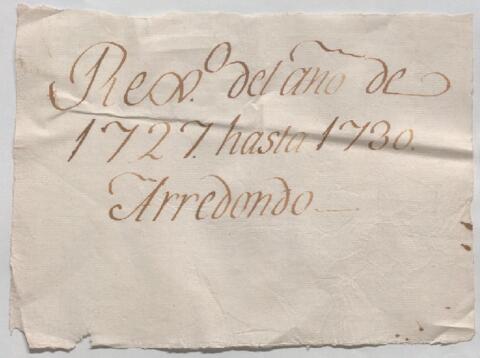 Rexº. del año de
1727. hasta 1730.
Arredondo